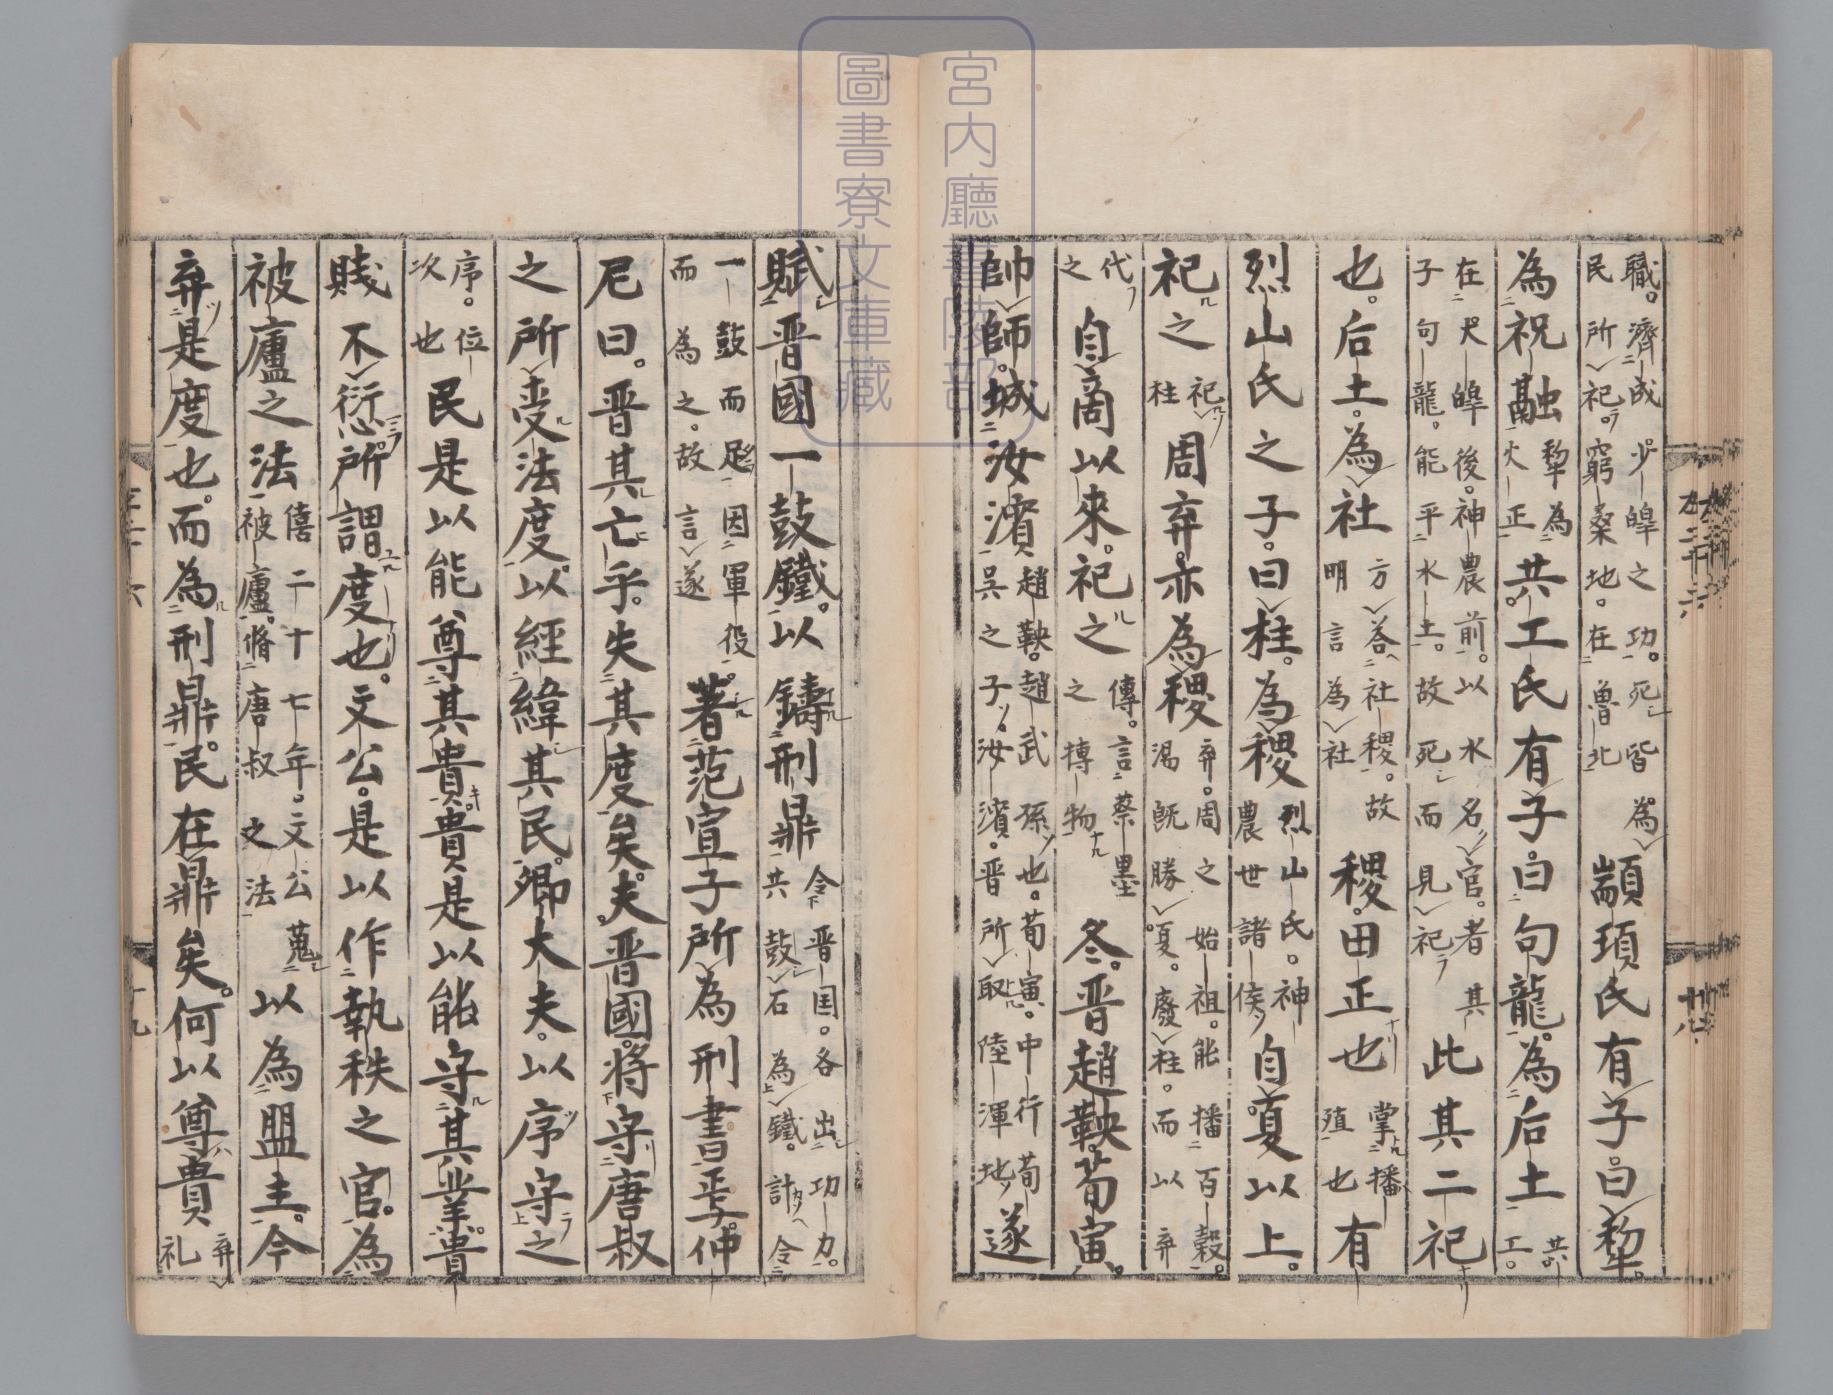 職。濟成少皡之功。死皆為民所祀。窮桑地。在魯北顓頊氏有子。曰犂。
為祝融犂為火正共工氏有子。曰句龍。為后土共工。
在大皡後。神農前。以水名官。者其子句龍。能平水土。故死而見祀此其二祀
也。后土。為社方荅社稷。故明言為社稷。田正也掌播殖也有
烈山氏之子。曰柱。為稷烈山氏。神農世諸侯自夏以上。
祀之祀柱周弃。亦為稷弃。周之始祖。能播百穀。湯既勝夏。廢柱。而以弃
代之自商以來。祀之傳。言蔡墨之博物冬。晋趙鞅。荀寅。
帥師。城汝濱趙鞅。趙武孫也。荀寅。中行荀吳之子。汝濱。晋所取陸渾地遂
賦晋國一鼓鐵。以鑄刑鼎令晋国。各出功力。共鼓石為鐵。計令
一鼓而足。因軍役。而為之。故言遂著范宣子所為刑書焉。仲
尼曰。晋其亡乎。失其度矣。夫晋國。將守唐叔
之所受法度。以經緯其民。卿大夫。以序守之
序。位次也民是以能尊其貴。貴是以能守其業。貴
賤不愆。所謂度也。文公。是以作執秩之官。為
被廬之法僖二十七年。文公蒐被廬。脩唐叔之法以為盟主。今
弃是度也。而為刑鼎。民在鼎矣。何以尊貴弃礼
宮内廳書陵部
圖書寮文庫藏